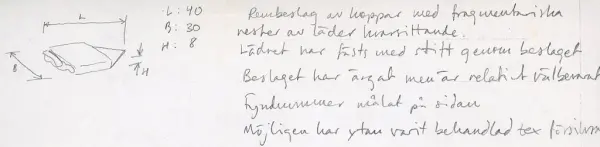 L
B
H
L: 40
B: 30
H: 8
Rembeslag av koppar med fragmentariska
rester av läder kvarsittande.
Lädret har fästs med stift genom beslaget
Beslaget har ärgat men är relativt välbevarat
Fyndnummer målat på sidan
Möjligen har ytan varit behandlad tex